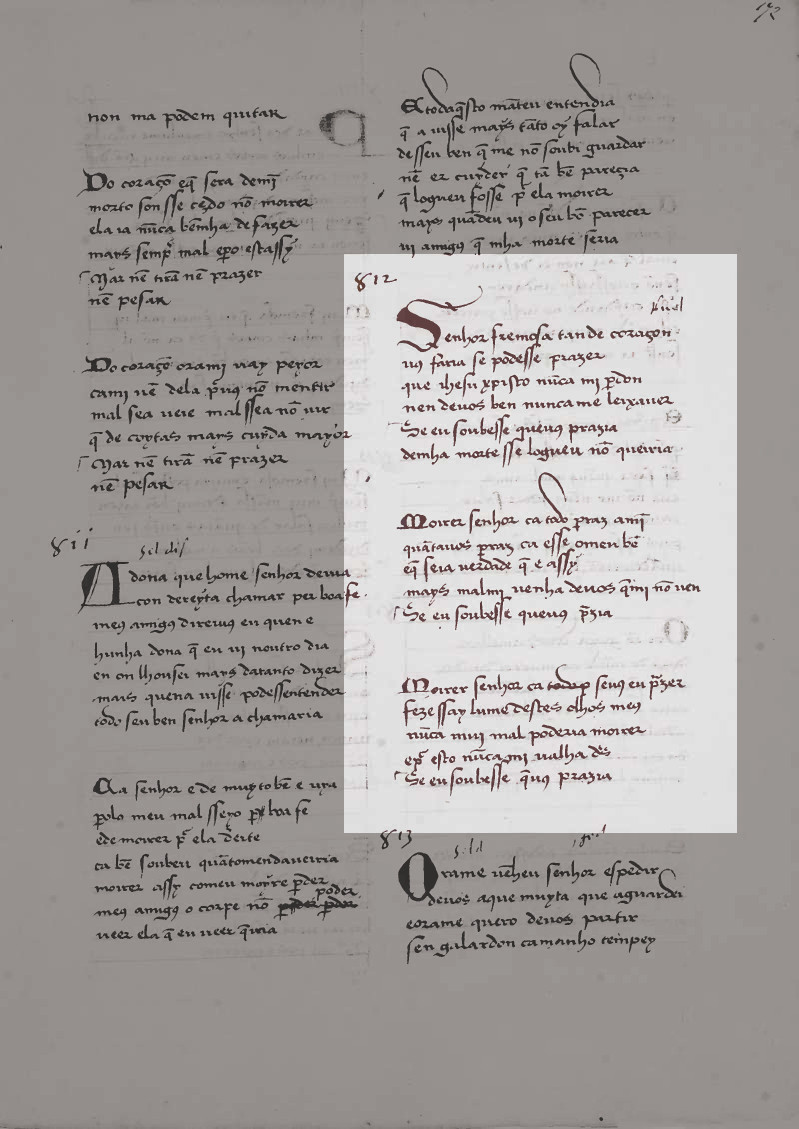 172
non ma podem quitar
Do coraçõ eq̃ sera demī
morto son sse cedo nõ moirer
ela ia nũca bẽmha de fazer
mays semp̃ mal e p̃o estassy
Mar nẽ tirã nẽ prazer
nẽ pesar
Do coraçõ orami vay peyor
cami uẽ dela p̃uꝯ nõ mentir
mal sea ueie mal ssea nõ uir
q̃ de coytas mays cuyda mayor
Mar nẽ tirã nẽ prazer
nẽ pesar
811
A dona que home senhor deuia
con dereyta chamar per boa fe
meꝯ amigꝯ direiuꝯ eu quen e
hunha dona q̃ eu ui noutro dia
en on lhousei mays datanto dizer
mais quena uisse podessentender
todo seu ben senhor a chamaria
Ca senhor e de muyto bẽ e uya
polo meu mal sseyo p̃ boa fe
ede moirer p̃ ela
ca bẽ soubeu quãtomendaueiria
moirer assy comeu moyre p̃der
poder
meꝯ amigꝯ o corpe nõ
ueer ela q̃ eu ueer q̃iria
E todaq̃sto mãteu entendia
q̃ a uisse mays tãto oy falar
desseu ben q̃ me nõ soubi guardar
nẽ er cuydei q̃ tã bẽ pareçia
q̃ logueu fosse p̃ ela moirer
mays quãdeu ui o seu bẽ parecer
ui amigꝯ q̃ mha morte seria
812
Senhor fremosa tan de coraçon
uꝯ faria se podesse prazer
que ihesu xpisto nũca mi p̃don
nen deuos ben nunca me leixauer
Se eu soubesse queuꝯ prazia
demha morte sse logueu nõ queiria
Moirer senhor ca todo p̃raz amĩ
quãtauos praz ca esse omeu bẽ
eq̃ seia uerdade q̃ e assy
mays malmi uenha deuos q̃mi nõ uen
Se eu soubesse queuꝯ p̃zia
Moirer senhor ca todo p̃ seuꝯ eu p̃zer
feze ssay lume destes olhos meꝯ
nũca mui mal poderia moirer
ep̃ esto nũca mi ualha ds̃
Se eu soubesse q̃uꝯ prazia
813
Orame uẽheu senhor espedir
deuos aque muyta que aguardei
eorame quero deuos partir
sen galardon camanho tempey